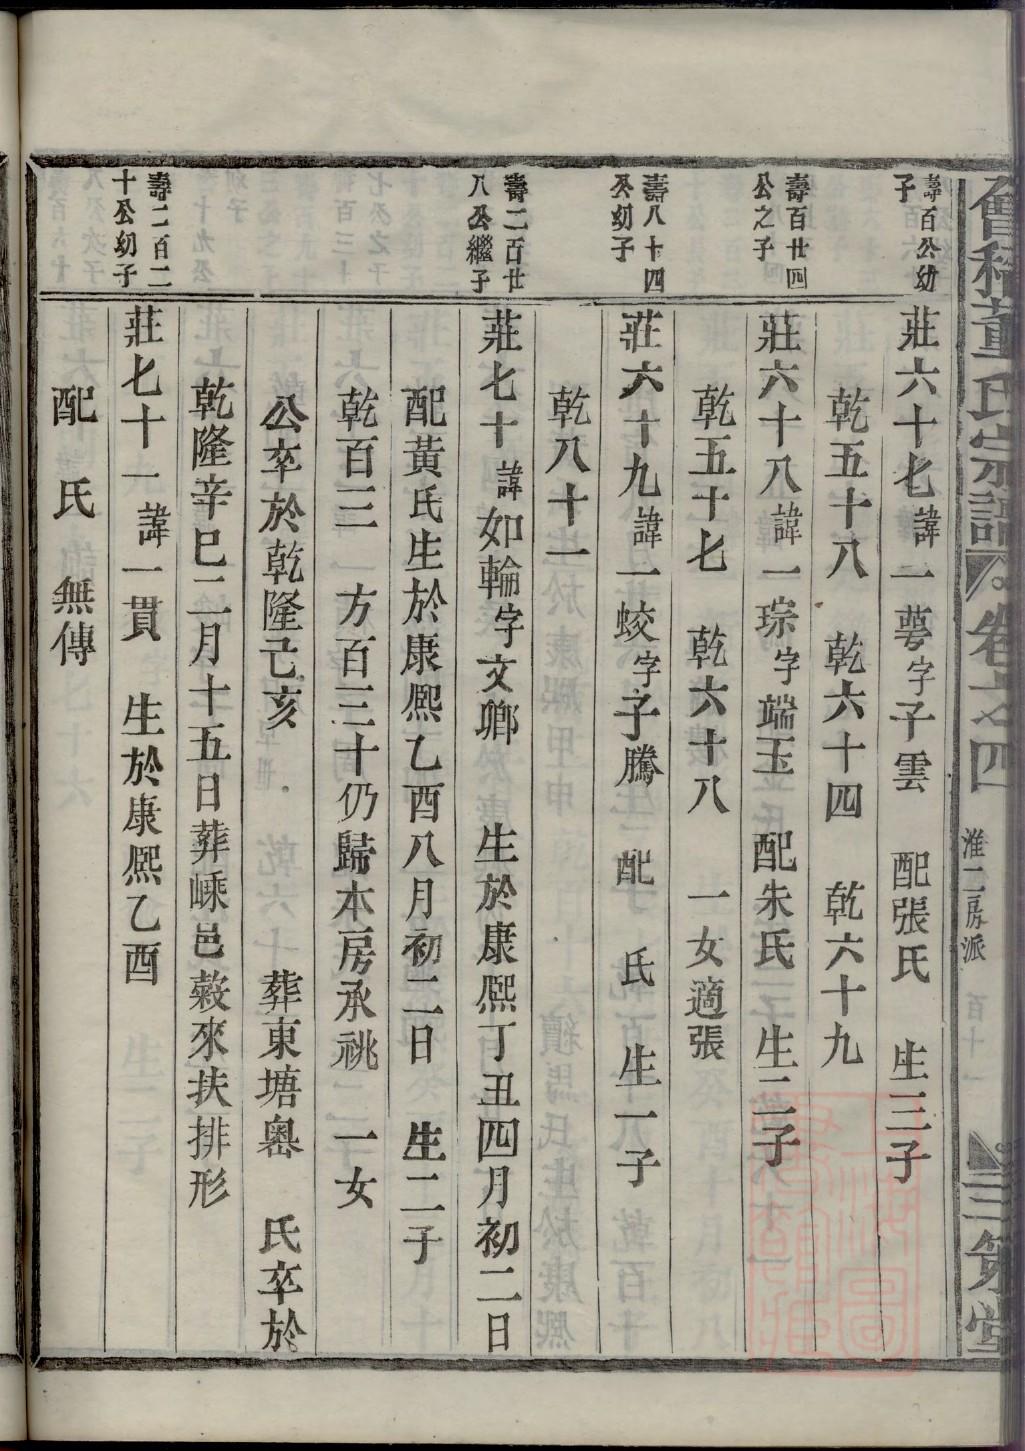 會稽董氏宗譜 卷之四 淮二房派 百十一 三策堂
壽百公幼
子
莊六十七諱一蕚字子雲 配張氏 生三子
乾五十八 乾六十四 乾六十九
壽百廿四
公之子
莊六十八諱一琮字端玉 配朱氏 生二子
乾五十七 乾六十八 一女適張
壽八十四
公幼子
莊六十九諱一蛟字子騰 配 氏 生一子
乾八十一
壽二百廿
八公繼子
莊七十諱如輪字文鄉 生於康熙丁丑四月初二日
配黃氏生於康熙乙酉八月初二日 生二子
乾百三 一方百三十仍歸本房承祧 一女
公卒於乾隆己亥 葬東塘嶴 氏卒於
乾隆辛巳二月十五日葬嵊邑穀來扶排形
壽二百二
十公幼子
莊七十一諱一貫 生於康熙乙酉
配 氏 無傳